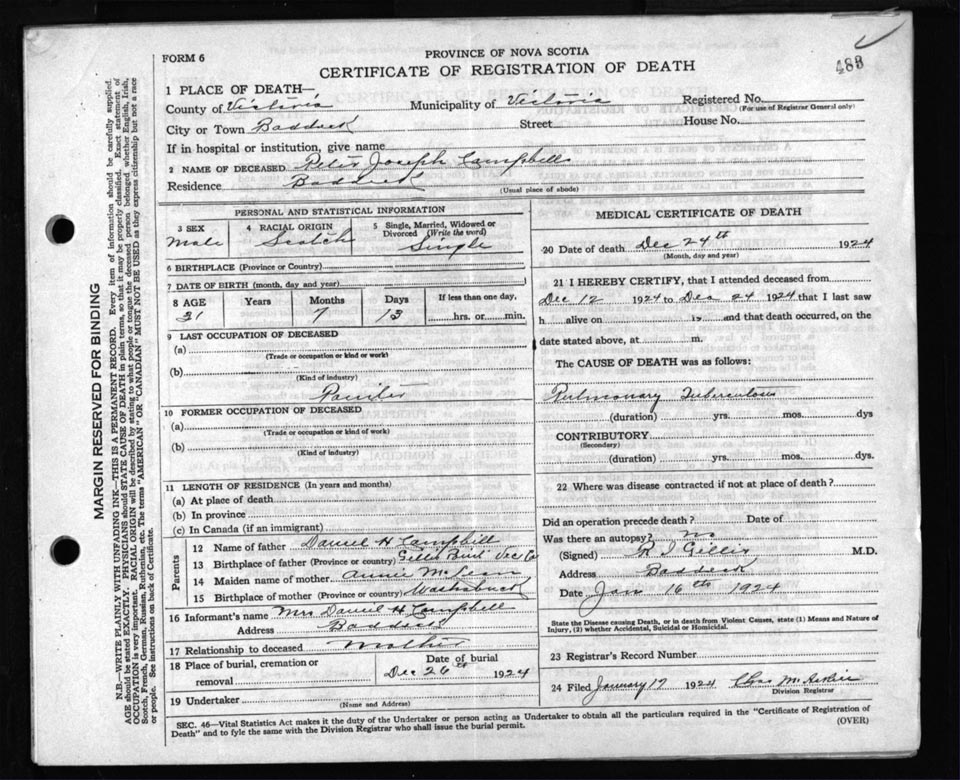 483
FORM 6
PROVINCE OF NOVA SCOTIA
CERTIFICATE OF REGISTRATION OF DEATH
1 PLACE OF DEATH—
County of Victoria Municipality of Victoria Registered No.
(For use of Registrar General only)
City or Town Baddeck Street House No.
If in hospital or institution, give name
2 NAME OF DECEASED Peter Joseph Campbell
Residence Baddeck
(Usual place of abode)
PERSONAL AND STATISTICAL INFORMATION
3 SEX
Male
4 RACIAL ORIGIN
Scotch
5 Single, Married, Widowed or Divorced (Write the word)
Single
6 BIRTHPLACE (Province or Country)
7 DATE OF BIRTH (month, day and year)
8 AGE Years Months Days If less than one day,
31 7 13 hrs. or min.
9 LAST OCCUPATION OF DECEASED
(a)
(Trade or occupation or kind of work)
(b)
(Kind of industry)
10 FORMER OCCUPATION OF DECEASED
(a)
(Trade or occupation or kind of work)
(b)
(Kind of industry)
11 LENGTH OF RESIDENCE (In years and months)
(a) At place of death
(b) In province
(c) In Canada (if an immigrant)
Parents
12 Name of father Daniel H Campbell
13 Birthplace of father (Province or country) Gillis Point Vic Co
14 Maiden name of mother Annie McLean
15 Birthplace of mother (Province or country) Washabuck
16 Informant's name Mrs Daniel H Campbell
Address Baddeck
17 Relationship to deceased Mother
18 Place of burial, cremation or removal
Date of burial
Dec 26th 1924
19 Undertaker
(Name and Address)
MEDICAL CERTIFICATE OF DEATH
20 Date of death Dec 24th 1924
(Month, day and year)
21 I HEREBY CERTIFY, that I attended deceased from
Dec 12 1924 to Dec 24 1924 that I last saw
h alive on 19 and that death occurred, on the
date stated above, at m.
The CAUSE OF DEATH was as follows:
Pulmonary Tuberculosis
(duration) yrs. mos. dys
CONTRIBUTORY
(Secondary)
(duration) yrs. mos. dys
22 Where was disease contracted if not at place of death?
Did an operation precede death? Date of
Was there an autopsy? no
(Signed) R I Gillis M.D.
Address Baddeck
Date Jan 16th 1924
State the Disease causing Death, or in death from Violent Causes, state (1) Means and Nature of
Injury, (2) whether Accidental, Suicidal or Homicidal.
23 Registrar's Record Number
24 Filed January 17 1924
Division Registrar
SEC. 46—Vital Statistics Act makes it the duty of the Undertaker or person acting as Undertaker to obtain all the particulars required in the "Certificate of Registration of
Death" and to fyle the same with the Division Registrar who shall issue the burial permit.
(OVER)
MARGIN RESERVED FOR BINDING
N.B.—WRITE PLAINLY WITH UNFADING INK—THIS IS A PERMANENT RECORD. Every item of information should be carefully supplied.
AGE should be stated EXACTLY. PHYSICIANS should STATE CAUSE OF DEATH in plain terms, so that it may be properly classified. Exact statement of
OCCUPATION is very important. RACIAL ORIGIN will be described by stating to what people or tongue the deceased person belonged whether English, Irish,
Scotch, French, German, Russian, Ruthenian, etc. The terms "AMERICAN" OR "CANADIAN" MUST NOT BE USED as they express citizenship but not a race
or people. See instructions on back of Certificate.